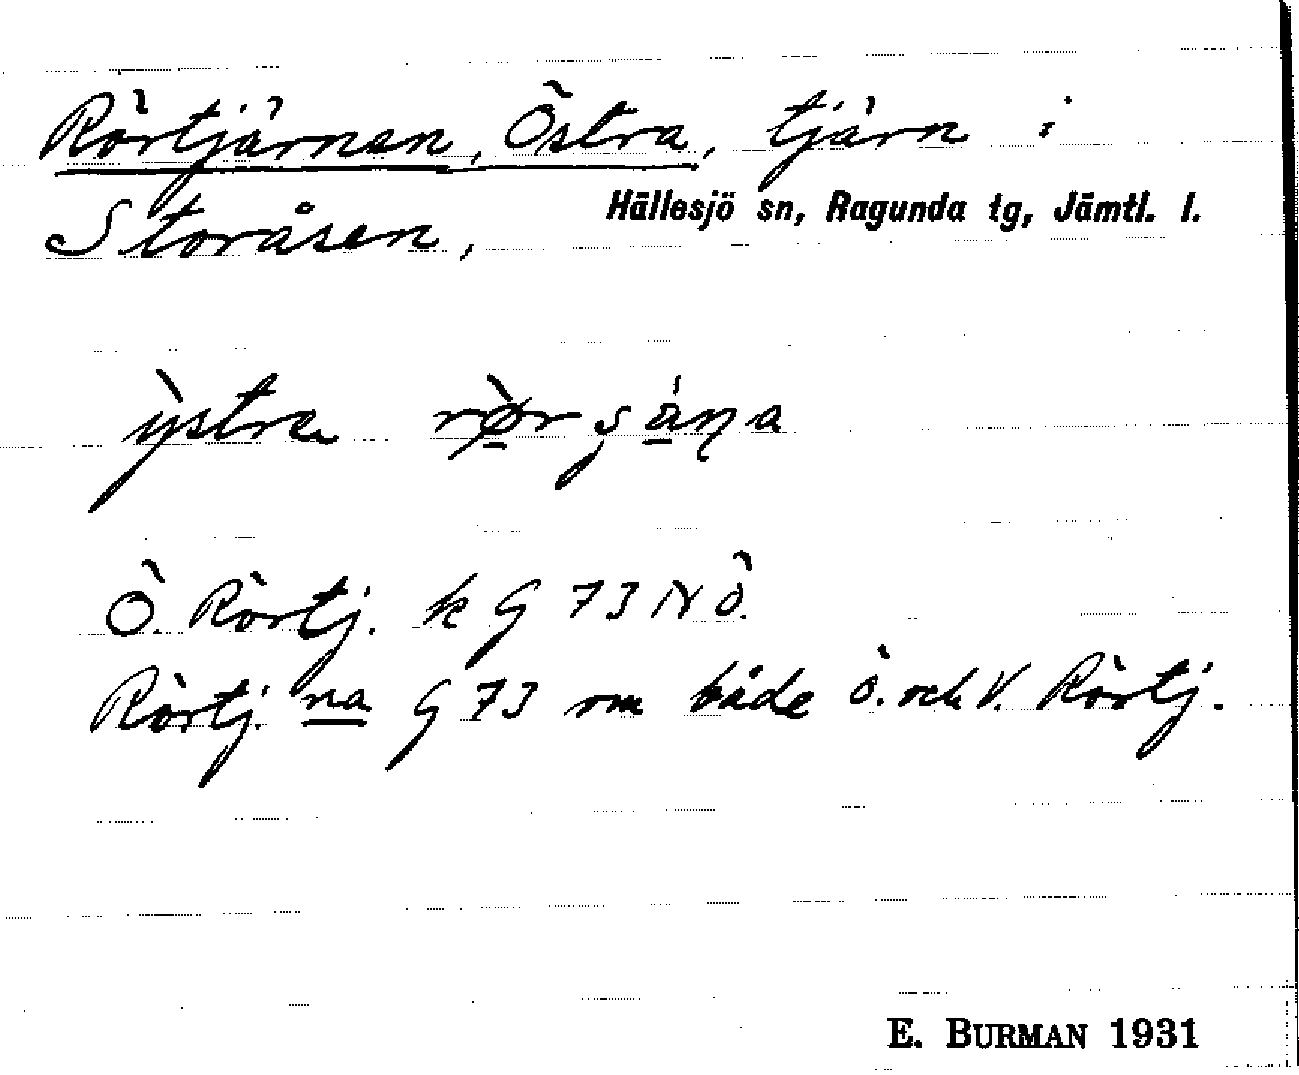 Rörtjärnen, Östra, tjärn i
Storåsen, Hällesjö sn, Ragunda tg, Jämtl. l.
ỳstra
Ö. Rörtj. k G 73 NÖ.
Rörtj. na G 73 om både Ö. och V. Rörtj.
E. BURMAN 1931